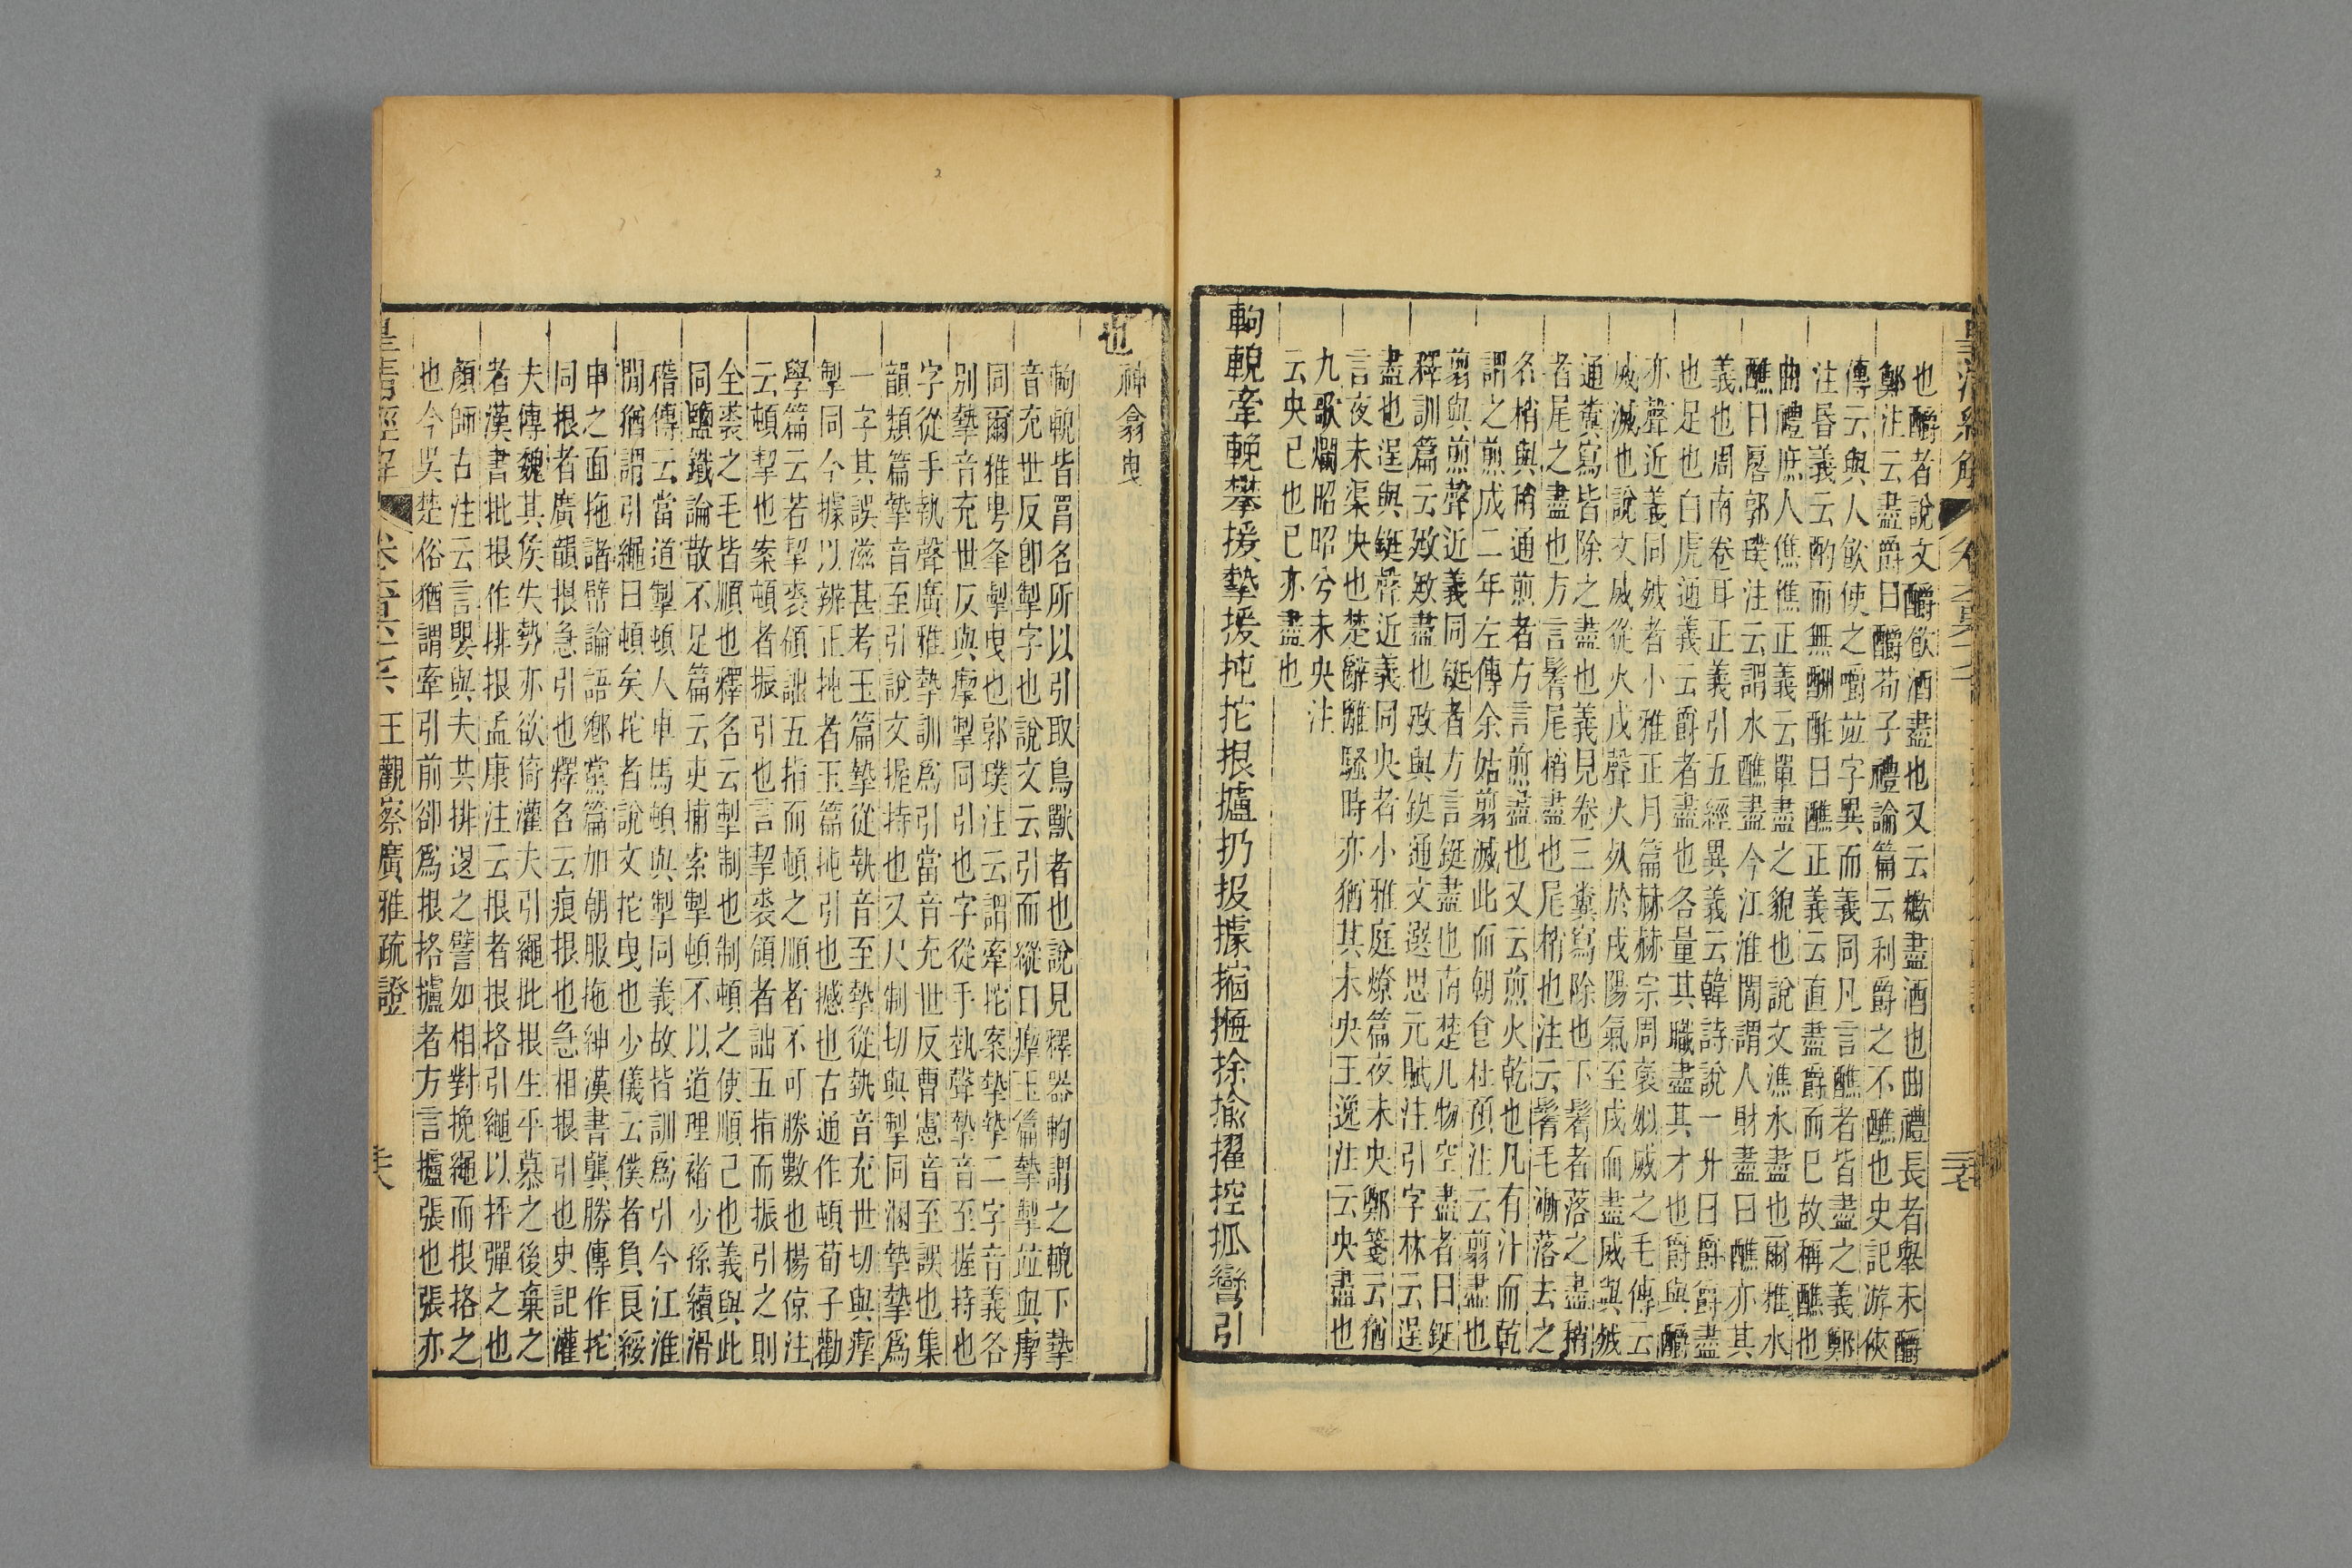 皇清經解
也釂者說文釂飲酒盡也又云㰶盡酒也曲禮長者舉未釂
鄭注云盡爵曰釂荀子禮論篇云利爵之不醮也史記游俠
傳云與人飲使之嚼竝字異而義同凡言醮者皆盡之義鄭
注昏義云酌而無酬酢曰醮正義云直盡爵而已故稱醮也
曲禮庶人僬僬正義云單盡之貌也說文潐水盡也爾雅水
醮曰厬郭璞注云謂水醮盡今江淮閒謂人財盡曰醮亦其
義也周南卷耳正義引五經異義云韓詩說一升曰爵爵盡
也足也白虎通義云爵者盡也各量其職盡其才也爵與釂
亦聲近義同烕者小雅正月篇赫赫宗周褒姒烕之毛傳云
烕滅也說文烕從火戌聲火死於戌陽氣至戌而盡烕與烕
通糞寫皆除之盡也義見卷三糞寫除也下鬌者落之盡稍
者尾之盡也方言鬌尾梢盡也尾梢也注云鬌毛漸落去之
名梢與稍通煎者方言煎盡也又云煎火乾也凡有汁而乾
謂之煎成二年左傳余姑翦滅此而朝食杜預注云翦盡也
翦與煎聲近義同鋌者方言鋌盡也南楚凡物空盡者曰鋌
釋訓篇云盡也與鋌通文選思元賦注引字林云逞
盡也逞與鋌聲近義同央者小雅庭燎篇夜未央鄭箋云猶
言夜未渠央也楚辭離騷時亦猶其未央王逸注云央盡也
九歌爛昭昭兮未央注
云央已也已亦盡也
軥䡔牽輓攀援摯援扽拕拫攎扔扱據摍捈揄擢控抓彎引
神翕曳
也
軥䡔皆罥名所以引取鳥獸者也說見釋器軥謂之䡔下摯
音充世反卽掣字也說文云引而縱曰瘳玉篇摯掣竝與瘳
同爾雅甹夆掣曳也郭璞注云謂牽拕案摯摯二字音義各
別摯音充世反與瘳掣同引也字從手埶聲摯音至握持也
字從手執聲廣雅摯訓爲引當音充世反曹憲音至誤也集
韻類篇摯音至引說文握持也又尺制切與掣同溷摯摯爲
一字其誤滋甚考玉篇摯從執音至摯從埶音充世切與瘳
掣同今據以辨正扽者玉篇扽引也撼也古通作頓荀子勸
學篇云若挈裘領詘五指而頓之順者不可勝數也楊倞注
云頓挈也案頓者振引也言挈裘領者詘五指而振引之則
全裘之毛皆順也釋名云掣制也制頓之使順己也義與此
同鹽鐵論散不足篇云吏捕索掣頓不以道理褚少孫續滑
稽傳云當道掣頓人車馬頓與掣同義故皆訓爲引今江淮
閒猶謂引繩曰頓矣拕者說文拕曳也少儀云僕者負良綏
申之面拖諸幦論語鄉黨篇加朝服拖紳漢書龔勝傳作拕
同拫者廣韻拫急引也釋名云痕拫也急相拫引也史記灌
夫傳魏其矦失勢亦欲倚灌夫引繩批拫生平慕之後棄之
者漢書批拫作排拫孟康注云拫者拫挌引繩以抨彈之也
顏師古注云言嬰與夫共排退之譬如相對挽繩而拫挌之
也今吳楚俗猶謂牽引前卻爲拫挌攎者方言攎張也張亦
皇清經解　王觀察廣雅疏證